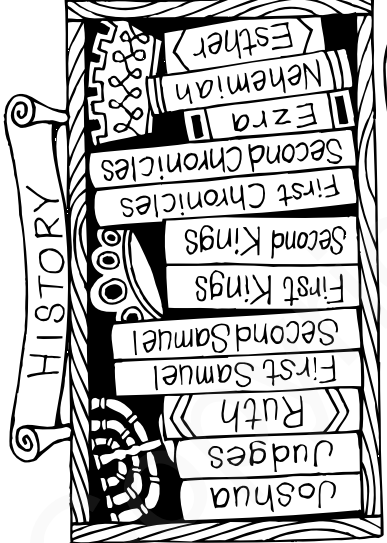 HISTORY
Joshua
Judges
Ruth
First Samuel
Second Samuel
First Kings
Second Kings
First Chronicles
Second Chronicles
Ezra
Nehemiah
Esther